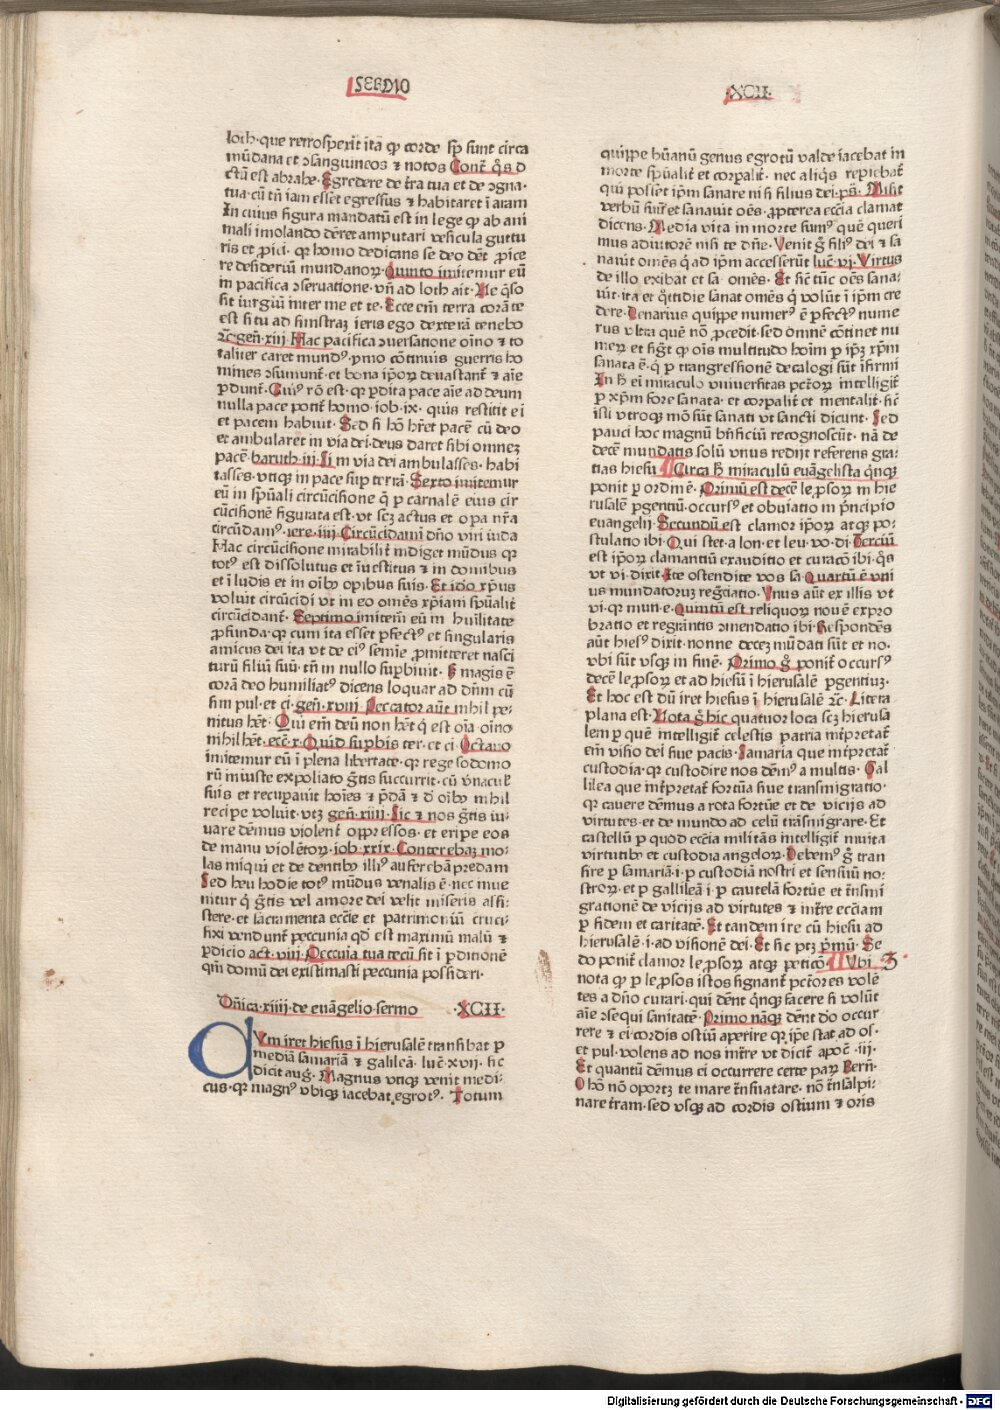 SERMO
·XCII·
loth·que retrospexit ita ꝙ corde sp̄ sunt circa
mūdana et ꝯsanguineos ⁊ notos Contᷓ q̄s d
ctū est abrahe·Egredere de t̄ra tua et de ꝯgna·
tua·cū tn̄ iam esset egressus ⁊ habitaret ī aram
In cuius figura mandatū est in lege ꝙ ab ani
mali imolando dēret amputari vesicula guttu
ris et ꝓici· ꝙ homo dedicans se deo dēt ꝓice
re desideriū mundanoꝝ·Quinto imitemur eū
in pacifica ꝯseruatione·vn̄ ad loth ait·Ne q̄so
sit iurgiū inter me et te·Ecce em̄ terra corā te
est si tu ad sinistraꝫ ieris ego dexterā tenebo
⁊c̄ gen̄·xiii·Hac pacifica ꝯuersatione oīno ⁊ to
taliter caret mund⁹·ꝓmo cōtinuis guerris ho
mines ꝯsumunt̄·et bona ipoꝝ deuastant̄ ⁊ aīe
ꝑdunt̄·Cui⁹ rō est·ꝙ ꝑdita pace aīe ad deum
nulla pace potit̄ homo·iob·ix·quis restitit ei
et pacem habuit·Sed si hō hr̄et pacē cū deo
et ambularet in via dei·deus daret sibi omnez
pacē·baruth·iii·Si in via dei ambulasses·habi
tasses·vtiqꝫ in pace suꝑ terrā·Sexto imitemur
eū in spūali circūcisione q̄ ꝑ carnalē eius cir
cūcisionē figurata est·vt scꝫ actus et oꝑa nr̄a
circūdam⁹·iere·iiii·Circūcidamī dn̄o viri iuda
Hac circūcisione mirabilit̄ indiget mūdus ꝙ
tot⁹ est dissolutus et ī vestitus ⁊ in domibus
et ī ludis et in oībꝫ oꝑibus suis·Et idio xp̄us
voluit circūcidi vt in eo omēs xp̄iani spūalit̄
circūcidant̄·Septimo imitem̄ eū in hūilitate
ꝓfunda·ꝙ cum ita esset ꝑfect⁹ et singularis
amicus dei ita vt de ei⁹ semīe ꝓmitteret nasci
turū filiū suū·tn̄ in nullo suꝑbiuit· S magis ē
corā deo humiliat⁹ dicens loquar ad dn̄m cū
sim pul·et ci·gen̄·xviii·Peccator aūt nihil pe·
nitus hēt·Qui em̄ deū non hēt q̄ est oīa oīno
nihil hēt·ecc̄·x·Quid suꝑbis ter·et ci·Octauo
imitemur eū ī plena libertate·ꝙ rege sodomo
rū iniuste expoliato gr̄tis succurrit·cū v̄nacul
suis et recuꝑauit hoīes ⁊ p̄dā ⁊ d̄ oībꝫ nihil
recipe voluit·vtꝫ gen̄·xiiii·Sic ⁊ nos gr̄tis iu·
uare dēmus violent̄ oppressos·et eriꝑe eos
de manu violētoꝝ·iob·xxix·Conterebaꝫ mo·
las iniqui et de dentibꝫ illi⁹ auferebā predam
Sed heu hodie tot⁹ mūdus venalis ē·nec inue
nitur q̄ gr̄tis vel amore dei velit miseris assi·
stere·et sacramenta eccīe et patrimoniū cruci·
fixi vendunt̄ peccunia qd̄ est maximū malū ⁊
ꝑdicio act·viii·Peccuīa tua tecū sit ī ꝑditionē
qm̄ domū dei existimasti peccunia possideri·
Dn̄ica·xiiii·de euāgelio·sermo ·XCII·
Dum iret hiesus ī hierusalē transibat ꝑ
mediā samariā ⁊ galileā· luc̄·xvij·sic
dicit aug·Magnus vtiqꝫ venit medi·
cus·ꝙ magn⁹ vbiqꝫ iacebat egrot⁹· Totum
quippe hūanū genus egrotū valde iacebat in
morte spūalit̄ et corꝑalit̄· nec aliq̄s reꝑiebat̄
qui posset ip̄m sanare nisi filius dei·ps̄·Misit
verbū suū et sanauit oēs·ꝓpterea eccīa clamat
dicens·Media vita in morte sum⁹ quē queri
mus adiutorē nisi te dn̄e·Venit g̊ fili⁹ dei ⁊ sa
nauit omēs q̄ ad ip̄m accesserūt luc̄·vj·Virtus
de illo exibat et sa·omēs·Et sic̄ tūc oēs sana·
uit·ita et q̄tidie sanat omēs q̄ volūt ī ip̄m cre
dere·Denarius quippe numer⁹ ē ꝑfect⁹ nume
rus vltra quē nō ꝓcedit·sed omnē cōtinet nu
meꝝ et sigt̄ ꝙ oīs multitudo hoīm ꝑ ip̄ꝫ xp̄m
sanata ē·q̄ ꝑ trangressionē decalogi sūt īfirmi
In h̄ ei miraculo vniuersitas pctōꝝ intelligit̄
ꝑ xp̄m fore sanata·et corꝑalit̄ et mentalit̄·sic̄
isti vtroqꝫ mō sūt sanati vt sancti dicunt·Sed
pauci hoc magnū bn̄ficiū recognoscūt·nā de
decē mundatis solū vnus redijt referens gra·
tias hiesu ¶Circa h̄ miraculū euāgelista q̄nqꝫ
ponit ꝑ ordinē·Primū est decē leprosoꝝ in hie
rusalē ꝑgentiū·occurs⁹ et obuiatio in p̄ncipio
euangelij·Secundū est clamor ip̄oꝝ atqꝫ po·
stulatio ibi·Qui stet·a lon·et leu·vo·di·Terciū
est ip̄oꝝ clamantiū exauditio et curacō ibi·q̄s
vt vi·dixit·Ite ostendite vos sa·Quartū ē vni
ius mundatoruꝫ reg̅ciatio·Vnus aūt ex illis vt
vi·ꝙ mun·e·Quintū est reliquoꝝ nouē expro
bratio et regrantis ꝯmendatio ibi·Respondēs
aūt hies⁹ dixit·nonne deceꝫ mūdati sūt et no·
vbi sūt vsqꝫ in finē· Primo g̊ ponit̄ occurs⁹
decē leprosoꝝ et ad hiesū ī hierusalē ꝑgentiuꝫ·
Et hoc est dū iret hiesus ī hierusalē ⁊c̄· Litera
plana est·Nota g̊ hic quatuor loca scꝫ hierusa
lem ꝑ quē intelligit̄ celestis patria int̄pretat̄
em̄ visio dei siue pacis·Samaria que int̄pretat̄
custodia·ꝙ custodire nos dēm⁹ a multis· Gal
lilea que int̄pretat̄ fortūa siue transmigratio·
ꝙ cauere dēmus a rota fortūe et de vicijs ad
virtutes·et de mundo ad celū trāsmigrare·Et
castellū ꝑ quod eccīa militās intelligit̄ munita
virtutibꝫ et custodia angeloꝝ·Debem⁹ g̊ tran
sire ꝑ samariā·i·ꝑ custodiā nostri et sensuū no·
stroꝝ·et ꝑ gallileā·i·ꝑ cautelā fortūe et tn̄smi
grationē de vicijs ad virtutes ⁊ int̄re ecc̄iam
ꝑ fidem et caritatē·Et tandem ire cū hiesu ad
hierusalē·i·ad visionē dei·Et sic ptꝫ p̄mū·Se
do ponit̄ clamor leprosoꝝ atqꝫ peticō·¶Vbi 3
nota ꝙ ꝑ leprosos istos signant̄ pctōres volē
tes a dn̄o curari·qui dēnt q̄nqꝫ facere si volūt
aīe ꝯsequi sanitatē·Primo nāqꝫ dēnt dō occur
rere ⁊ ei cordis ostiū aperire ꝙ ip̄e stat ad os·
et pul·volens ad nos int̄re vt dicit̄ apoc̄·iii·
Et quantū dēmus ei occurrere certe paꝝ Bern̄·
O hō nō oportꝫ te mare trn̄sfratare·nō trn̄salpi·
nare t̄ram·sed vsqꝫ ad cordis ostium ⁊ oris
Digitalisierung gefördert durch die Deutsche Forschungsgemeinschaft - DFG